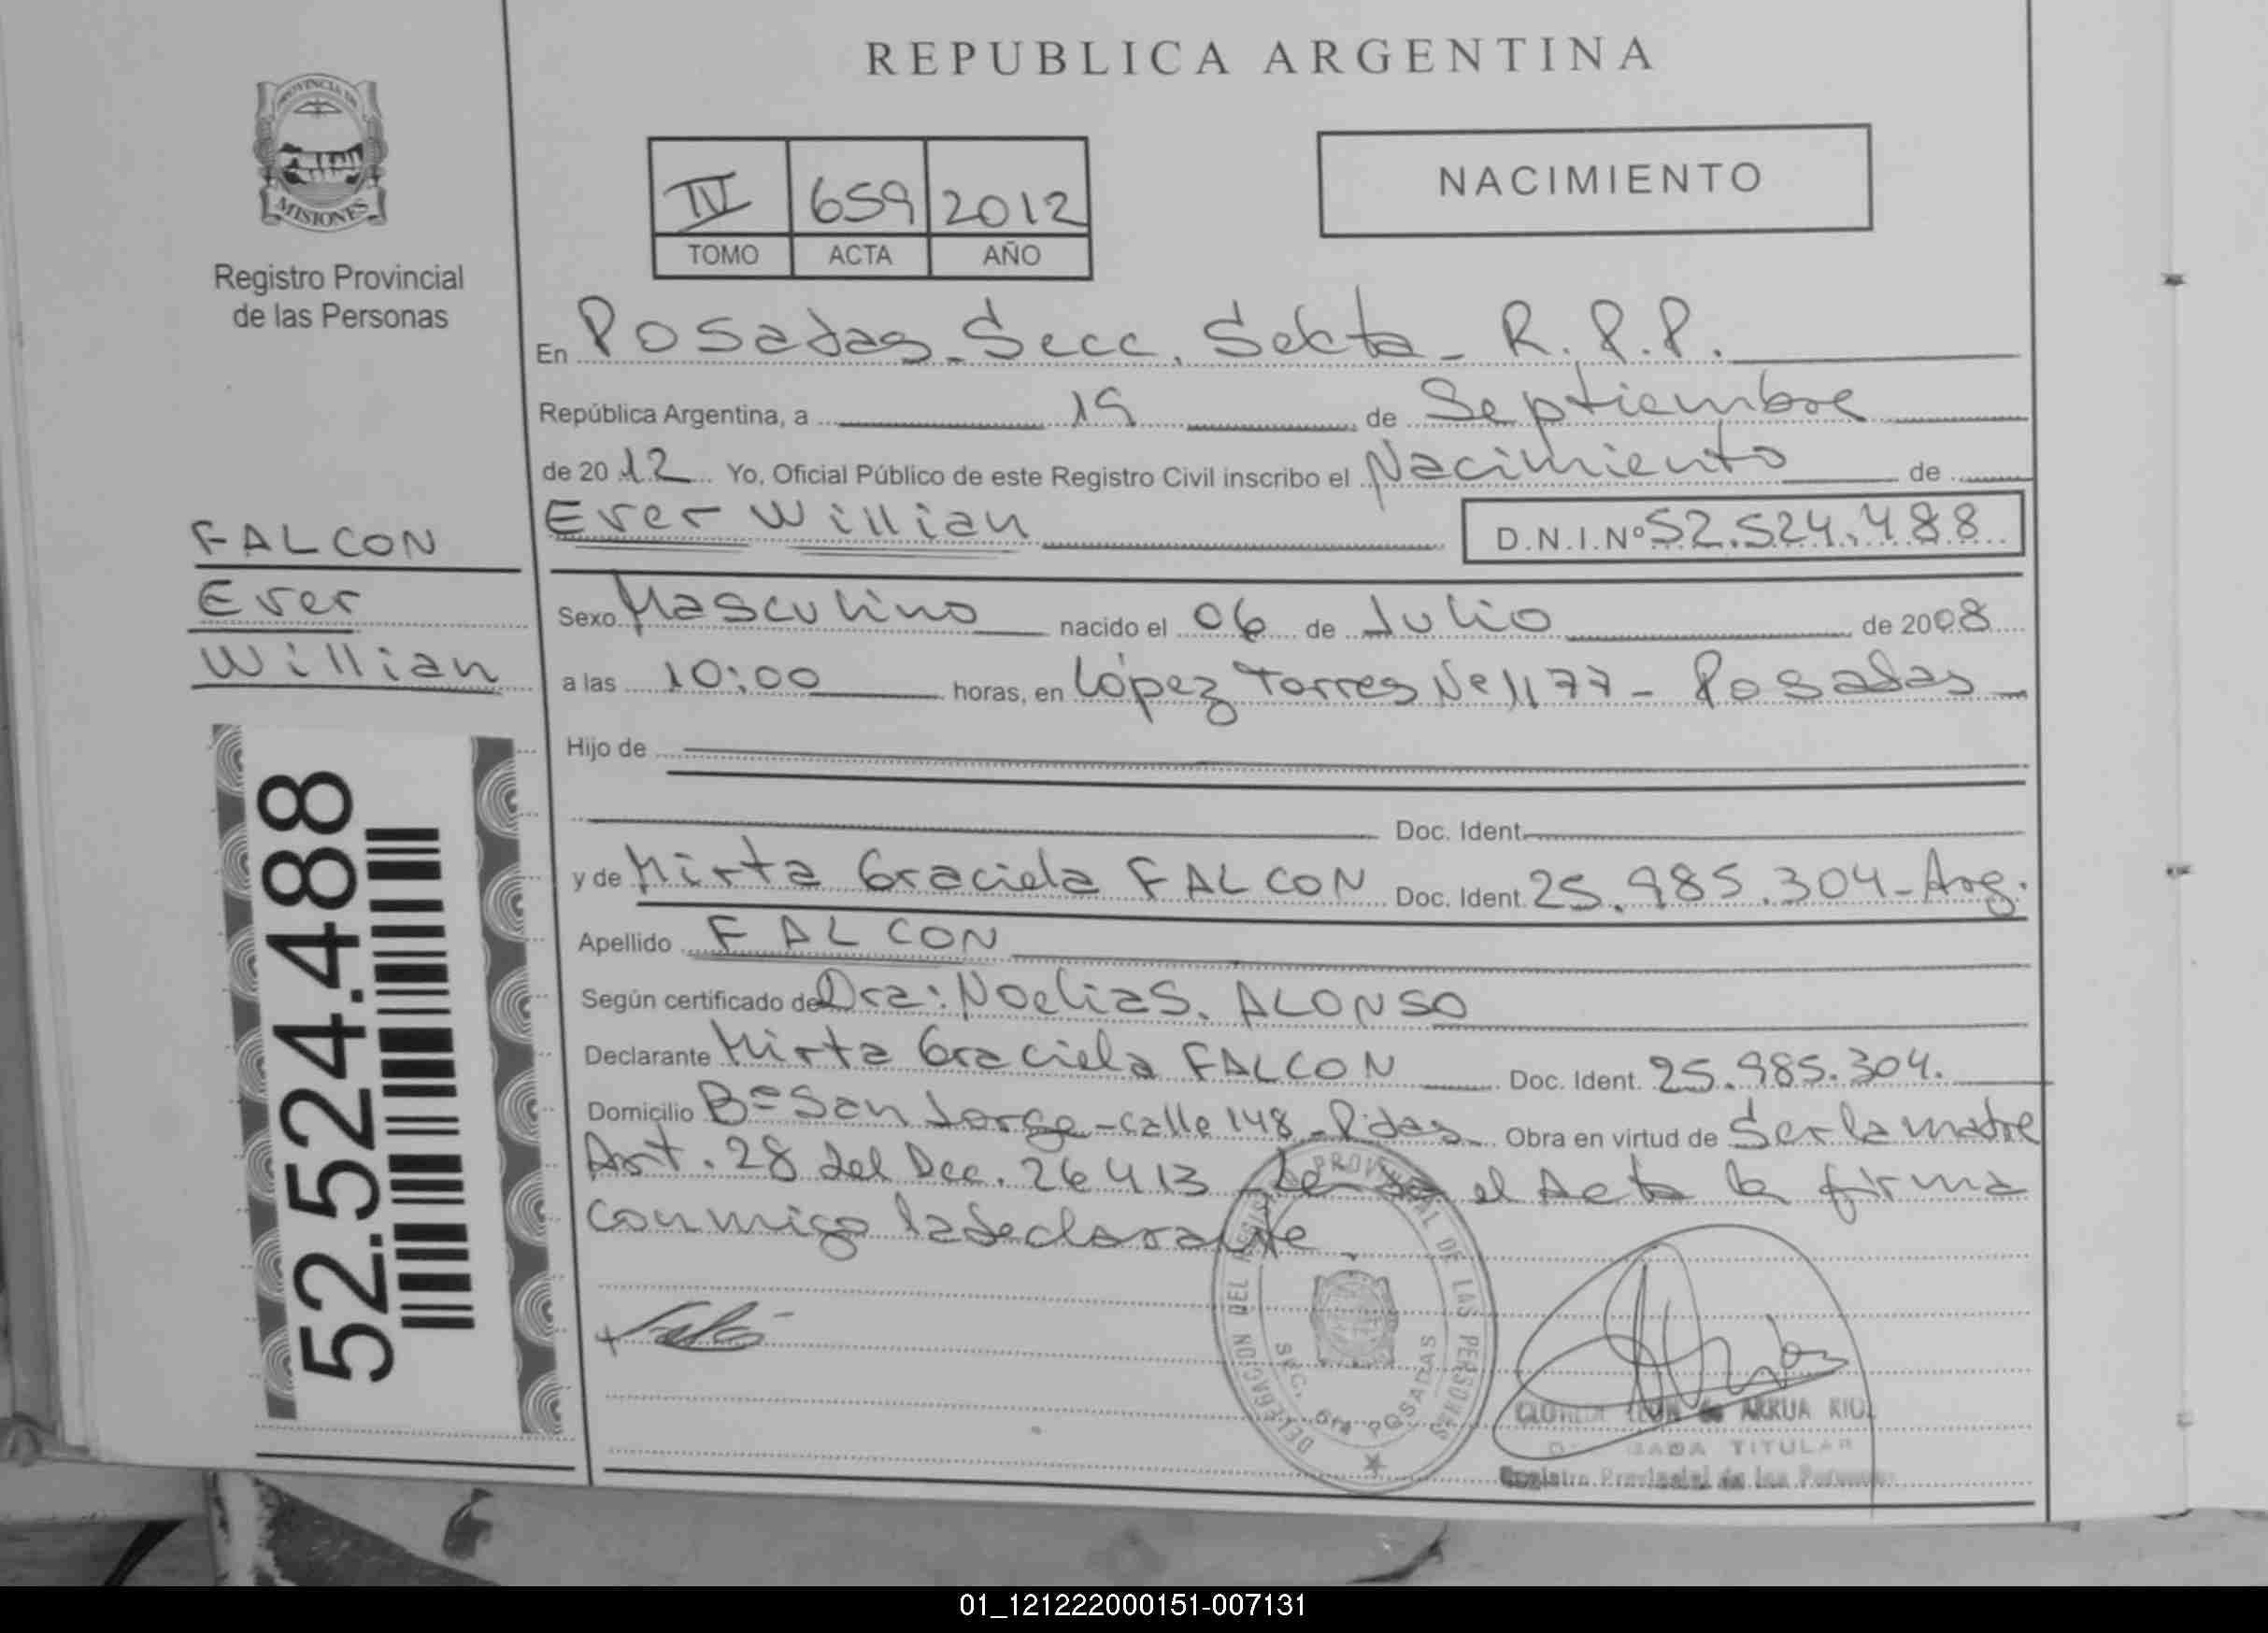 REPUBLICA ARGENTINA
PROVINCIA DE
MISIONES
Registro Provincial
de las Personas
IV 659 2012
TOMO ACTA AÑO
NACIMIENTO
En Posadas - Secc. Sexta - R.P.P.
República Argentina, a 19 de Septiembre
de 2012 Yo, Oficial Público de este Registro Civil inscribo el Nacimiento de
Ever Willian D.N.I.Nº 52.524.488
FALCON
Ever
Willian
52.524.488
Sexo Masculino nacido el 06 de Julio de 2008
a las 10:00 horas, en López Torres Nº 1177 - Posadas
Hijo de
Doc. Ident.
y de Mirta Graciela FALCON Doc. Ident. 25.985.304 - Arg.
Apellido FALCON
Según certificado de Dra: Noelia S. ALONSO
Declarante Mirta Graciela FALCON Doc. Ident. 25.985.304.
Domicilio Bº San Jorge - calle 148 - Pdas. Obra en virtud de Ser la madre
Art. 28 del Dec. 26413 el Acta la firma
conmigo la declarante.
DELEGACION DEL REGISTRO PROVINCIAL DE LAS PERSONAS
SEC. 6ta POSADAS
de ARRUA
TITULAR
Registro Provincial de las Personas
01_121222000151-007131